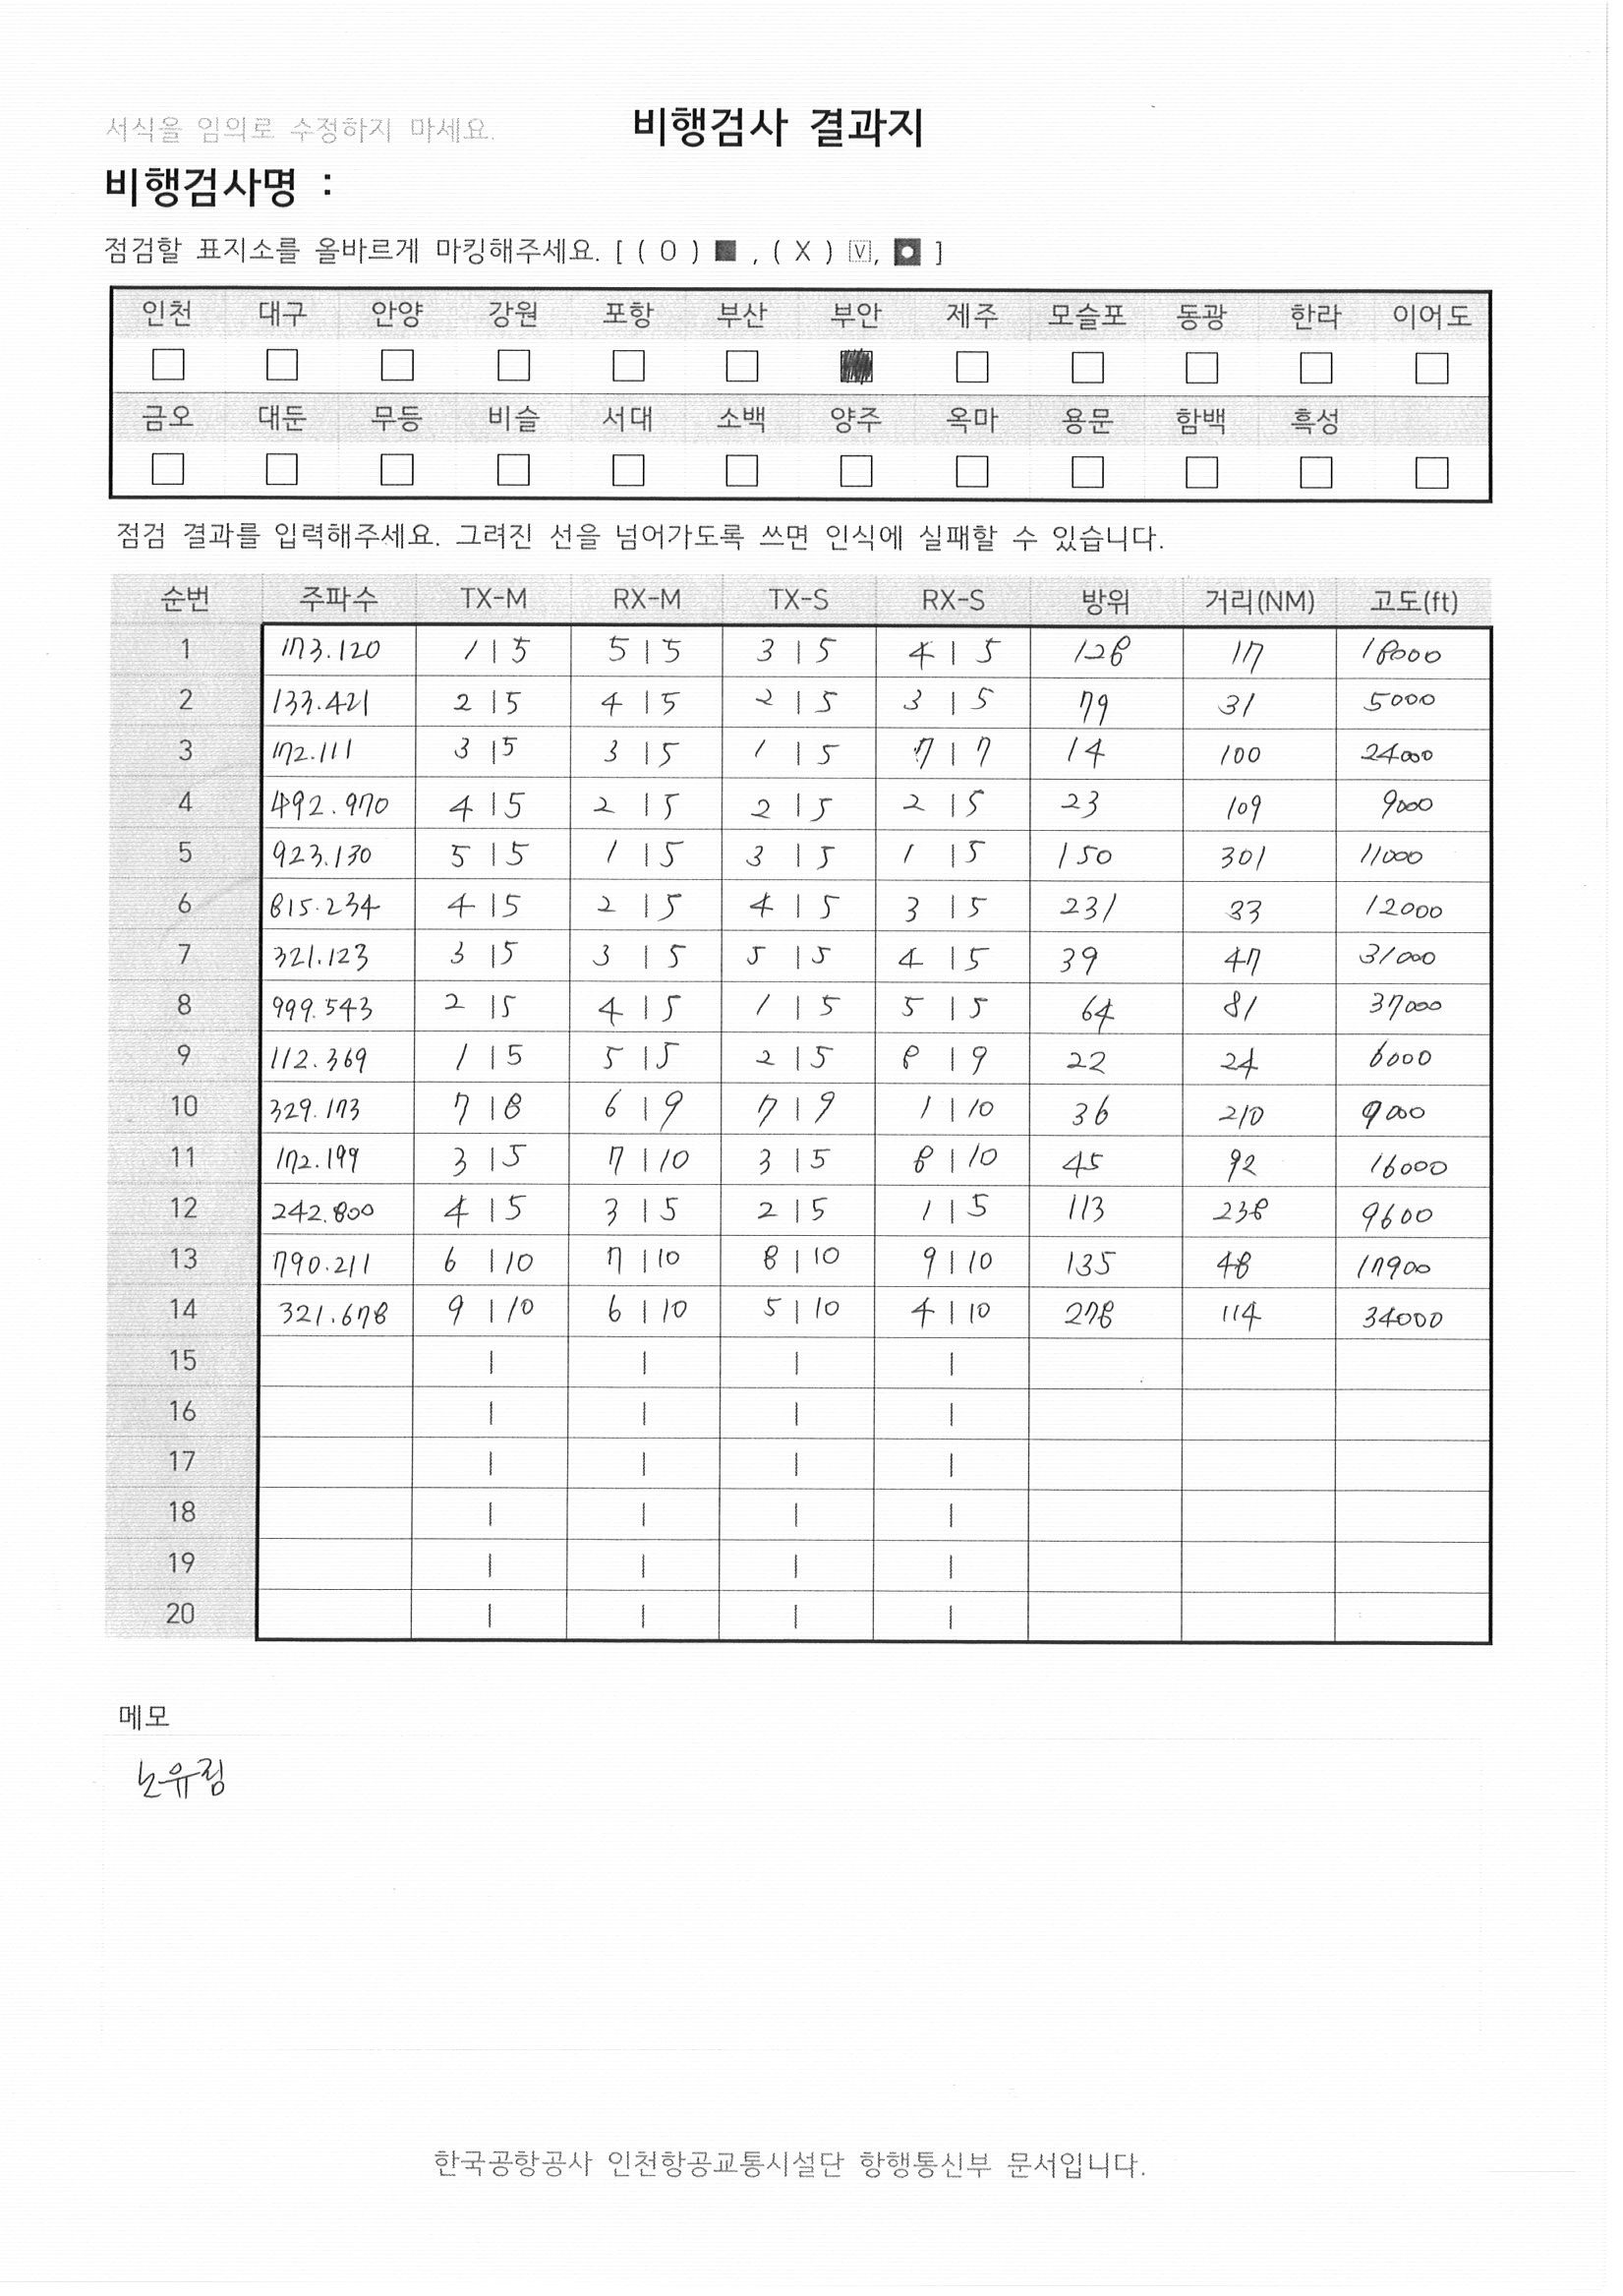 서식을 임의로 수정하지 마세요. 비행검사 결과지
비행검사명 :
점검할 표지소를 올바르게 마킹해주세요. [ ( O ) ■ , ( X ) V, ]
인천 대구 안양 강원 포항 부산 부안 제주 모슬포 동광 한라 이어도
금오 대둔 무등 비슬 서대 소백 양주 옥마 용문 함백 흑성
점검 결과를 입력해주세요. 그려진 선을 넘어가도록 쓰면 인식에 실패할 수 있습니다.
순번 주파수 TX-M RX-M TX-S RX-S 방위 거리(NM) 고도(ft)
1 173.120 1 | 5 5 | 5 3 | 5 4 | 5 128 17 18000
2 133.421 2 | 5 4 | 5 2 | 5 3 | 5 79 31 5000
3 172.111 3 | 5 3 | 5 1 | 5 7 | 7 14 100 24000
4 492.970 4 | 5 2 | 5 2 | 5 2 | 5 23 109 9000
5 923.130 5 | 5 1 | 5 3 | 5 1 | 5 150 301 11000
6 815.234 4 | 5 2 | 5 4 | 5 3 | 5 231 33 12000
7 321.123 3 | 5 3 | 5 5 | 5 4 | 5 39 47 31000
8 999.543 2 | 5 4 | 5 1 | 5 5 | 5 64 81 37000
9 112.369 1 | 5 5 | 5 2 | 5 8 | 9 22 24 6000
10 329.173 7 | 8 6 | 9 7 | 9 1 | 10 36 210 9000
11 172.199 3 | 5 7 | 10 3 | 5 8 | 10 45 92 16000
12 242.800 4 | 5 3 | 5 2 | 5 1 | 5 113 238 9600
13 790.211 6 | 10 7 | 10 8 | 10 9 | 10 135 48 17900
14 321.678 9 | 10 6 | 10 5 | 10 4 | 10 278 114 34000
15 | | | |
16 | | | |
17 | | | |
18 | | | |
19 | | | |
20 | | | |
메모
노유림
한국공항공사 인천항공교통시설단 항행통신부 문서입니다.